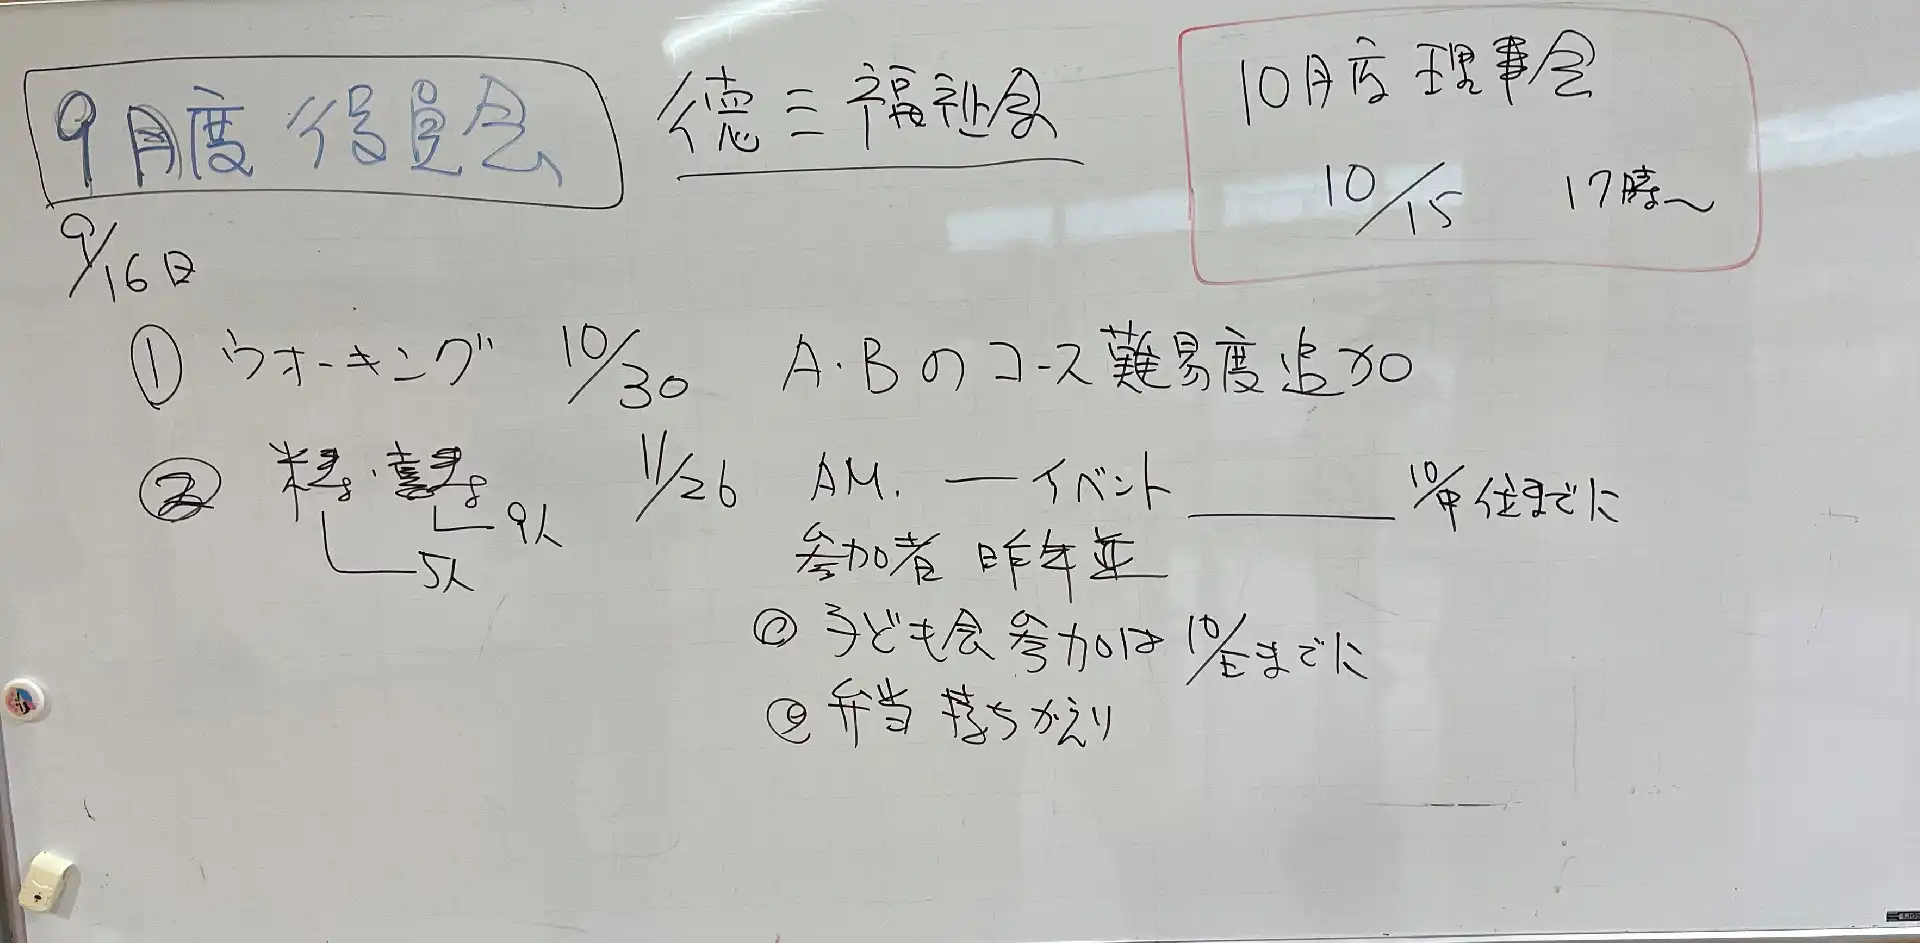 9月度 役員会
徳三福祉会
10月度 理事会
10/15 17時〜
9/16日
① ウオーキング 10/30 A・Bのコース難易度追加
② 米寿・喜寿 11/26 AM. ーイベント 10/中 住までに
9人
5人
参加者 昨年並
◎ 子ども会 参加は 10/E までに
◎ 弁当 持ちかえり